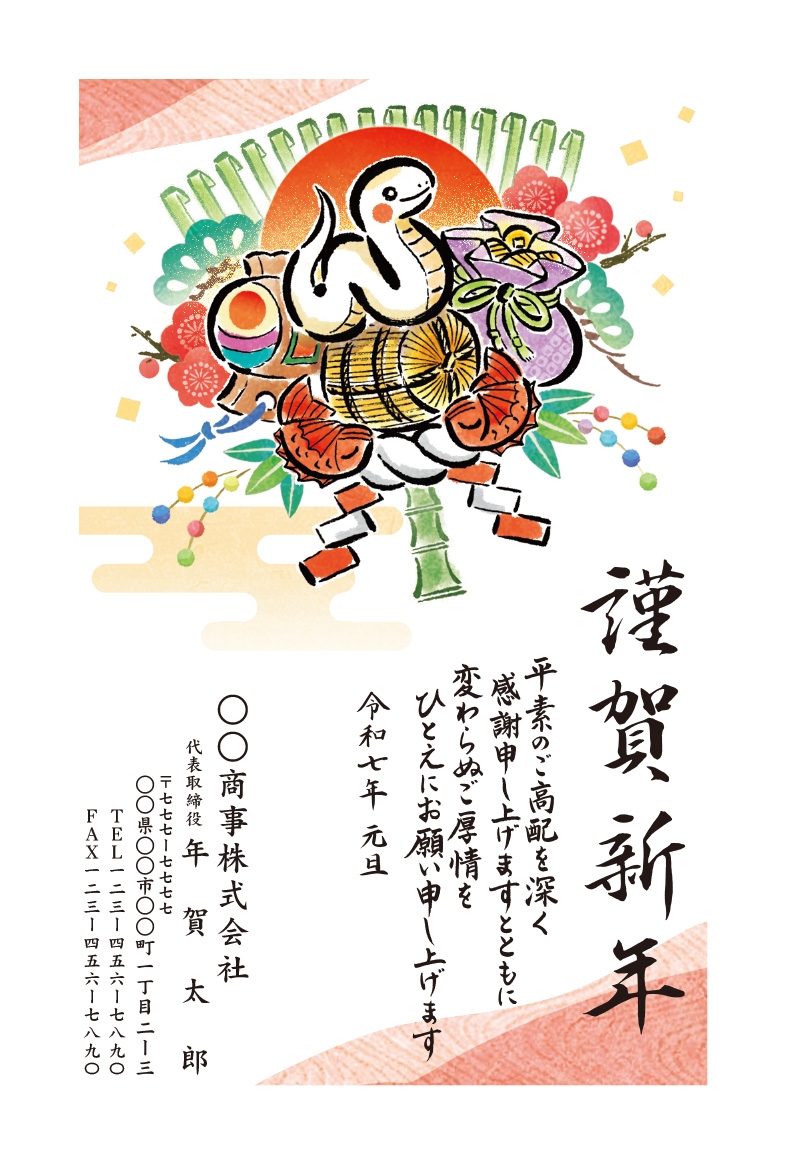 謹賀新年
平素のご高配を深く
感謝申し上げますとともに
変わらぬご厚情を
ひとえにお願い申し上げます
令和七年 元旦
〇〇商事株式会社
代表取締役 年賀太郎
〒七七七ー七七七七
〇〇県〇〇市〇〇町一丁目二ー三
TEL一二三ー四五六ー七八九〇
FAX一二三ー四五六ー七八九〇